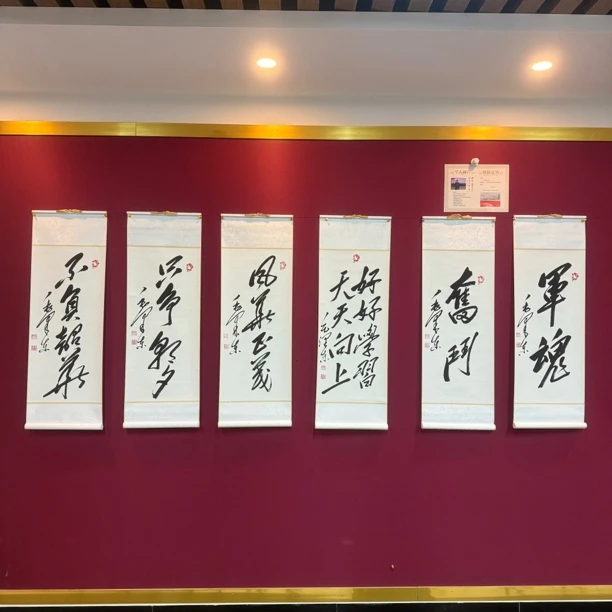 軍魂
毛澤東
奮鬥
毛澤東
好好學習
天天向上
毛澤東
风華正茂
毛澤東
只争朝夕
毛澤東
不負韶華
毛澤東